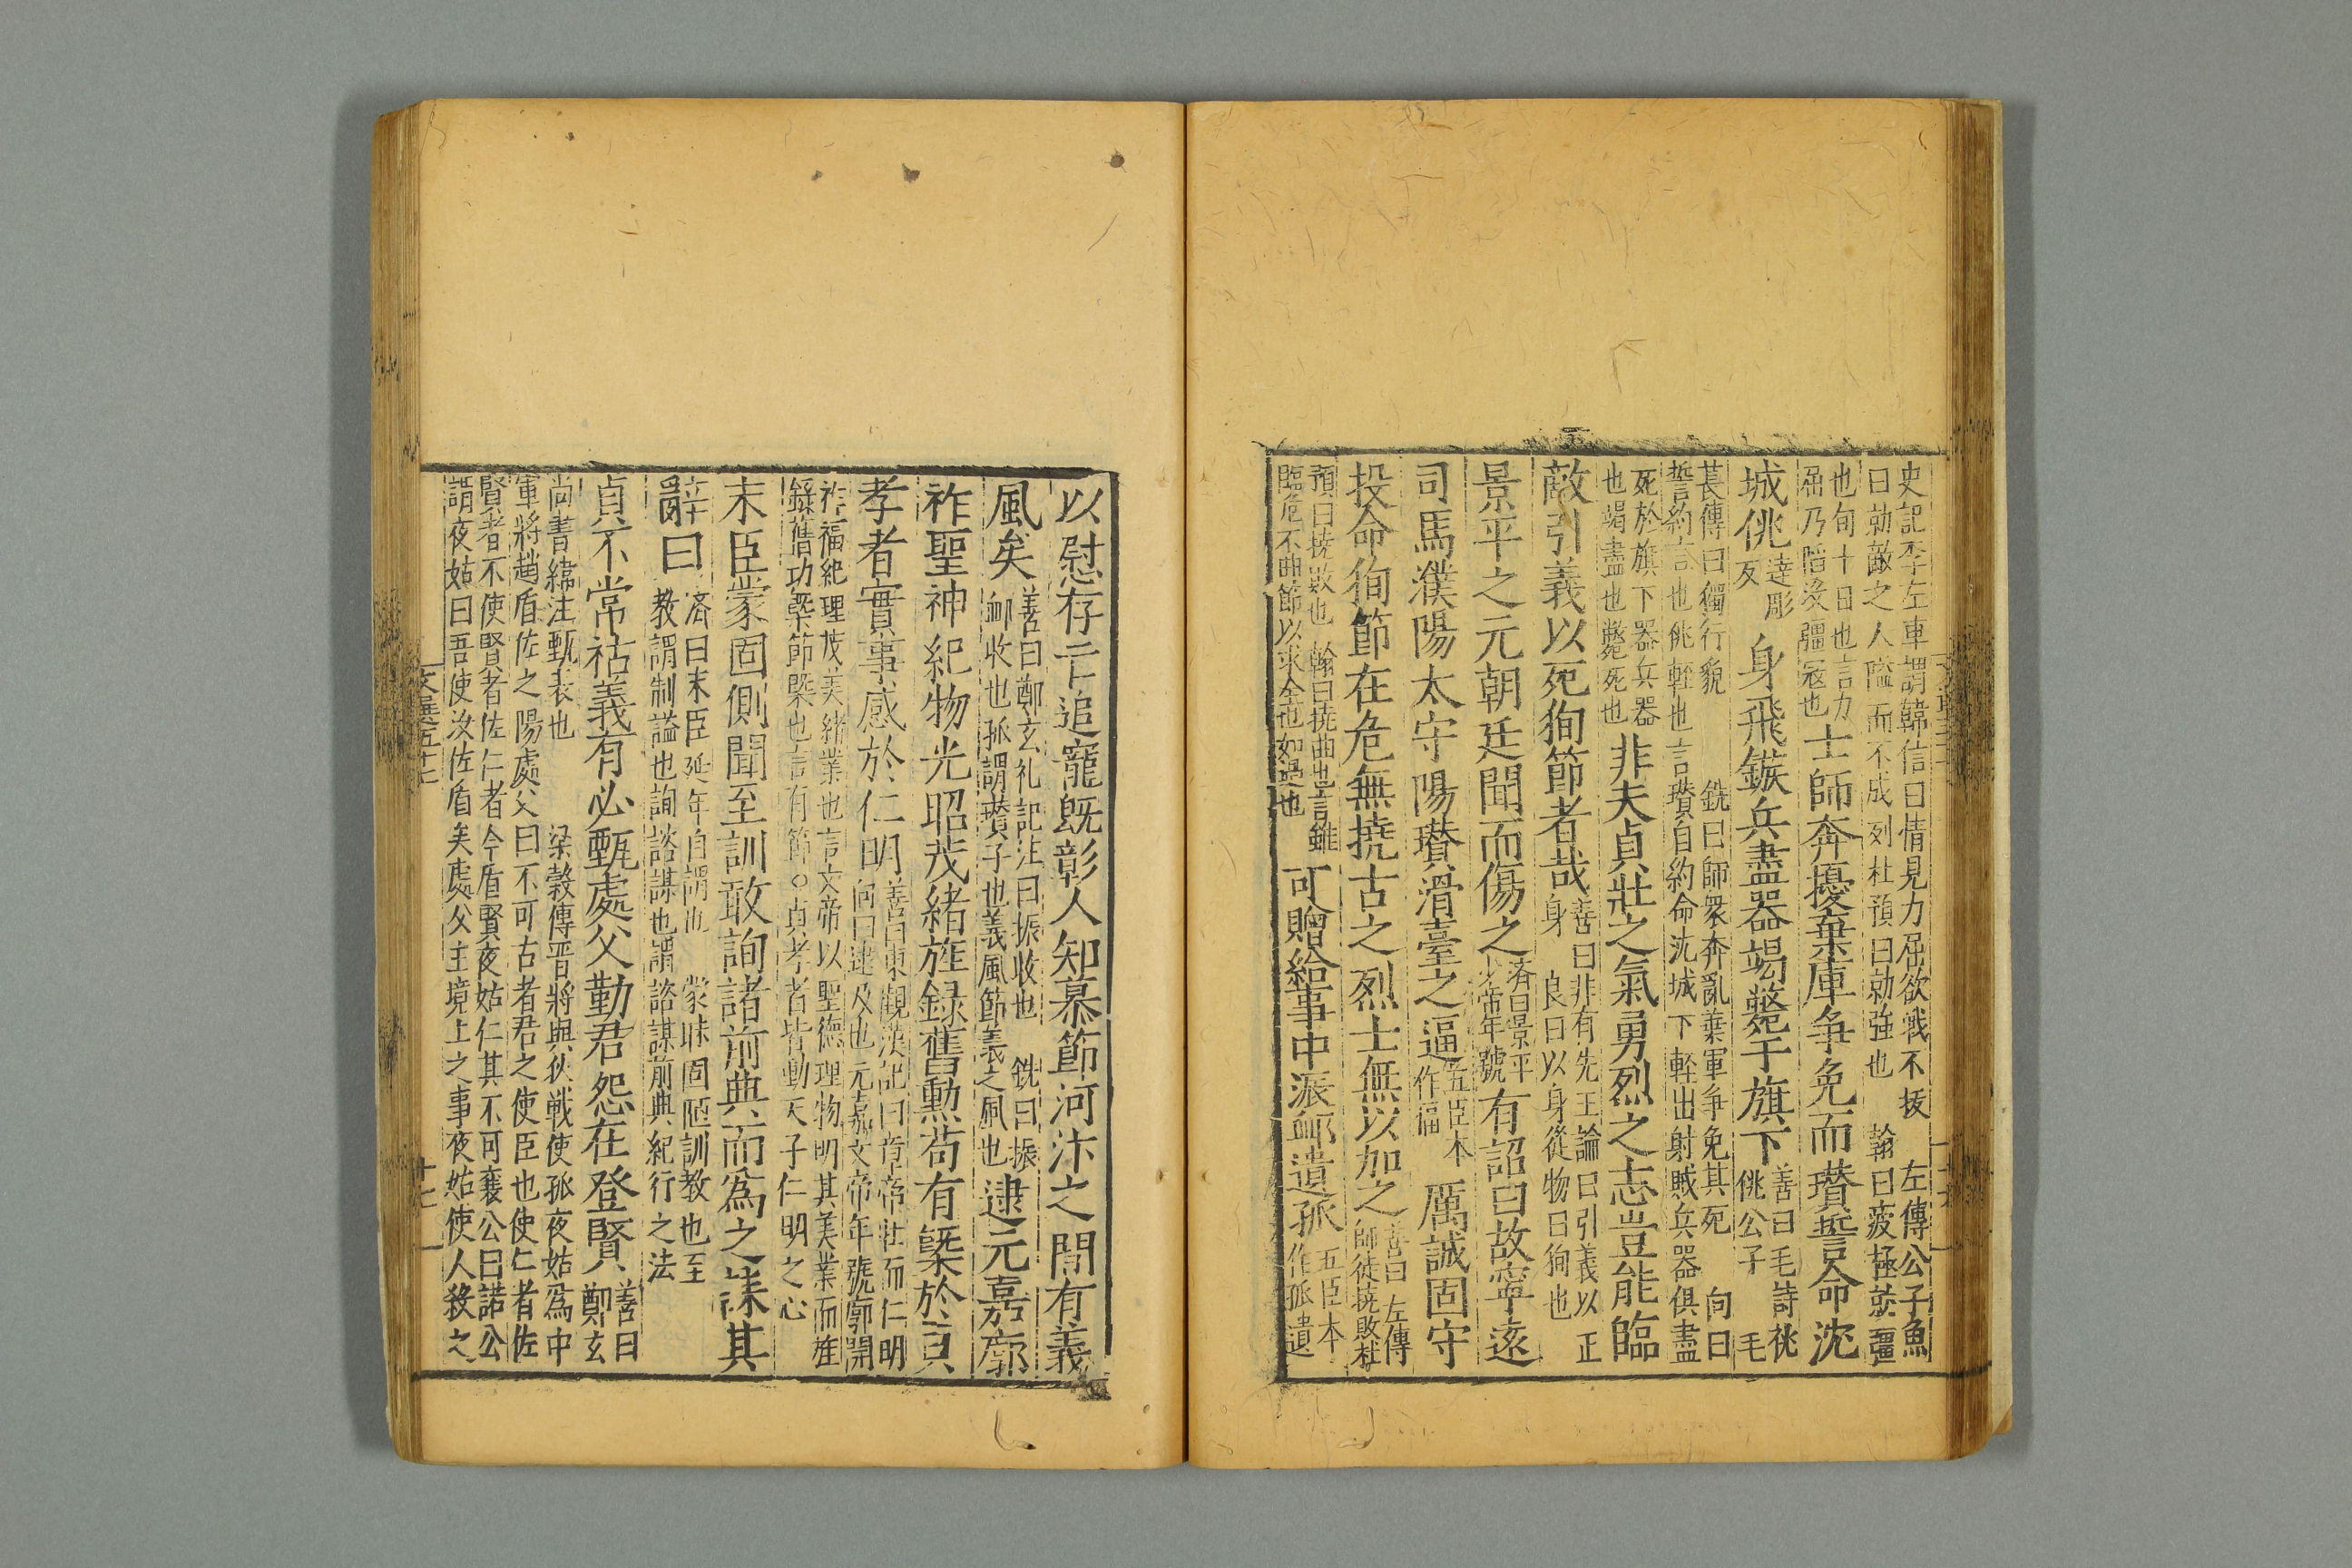 史記李左車謂韓信曰情見力屈欲戰不拔　左傳公子魚
曰勍敵之人隘而不成列杜預曰勍強也　翰曰疲極並彊
也旬十日也言力
屈乃陷没彊寇也
士師奔擾棄庫爭免而瓚誓命沈
城佻
達彫
反
身飛鏃兵盡器竭斃于旗下
善曰毛詩佻
佻公子　毛
萇傳曰獨行貌　銑曰師衆奔亂棄軍爭免其死　向曰
誓約言也佻輕也言瓚自約命沈城下輕出射賊兵器俱盡
死於旗下器兵器
也竭盡也斃死也
非夫貞壯之氣勇烈之志豈能臨
敵引義以死狥節者哉
善曰非有先王論曰引義以正
身　良曰以身從物曰狥也
景平之元朝廷聞而傷之
濟曰景平
少帝年號
有詔曰故寧遠
司馬濮陽太守陽瓚滑臺之逼
五臣本
作福
厲誠固守
投命徇節在危無撓古之烈士無以加之
善曰左傳
師徒撓敗杜
預曰撓敗也　翰曰撓曲也言雖
臨危不曲節以求全也如過也
可贈給事中派䘏遺孤
五臣本
作孤遺
以慰存亡追寵旣彰人知慕節河汴之間有義
風矣
善曰鄭玄礼記注曰振收也　銑曰振
䘏收也孤謂瓚子也義風節義之風也
逮元嘉廓
祚聖神紀物光昭茂緒旌録舊勲苟有槩於貞
孝者實事感於仁明
善曰東觀漢記曰章帝壯而仁明
向曰逮及也元嘉文帝年號廓開
祚福紀理茂美緒業也言文帝以聖德理物明其美業而旌
錄舊功槩節槩也言有節○貞孝者皆動天子仁明之心
末臣蒙固側聞至訓敢詢諸前典而爲之誄其
辭曰
濟曰末臣延年自謂也　蒙昧固陋訓教也至
教謂制謚也詢諮謀也謂諮謀前典紀行之法
貞不常祜義有必甄處父勤君怨在登賢
善曰
鄭玄
尚書緯注甄表也　梁穀傳晋將與狄戰使孤夜姑爲中
軍將趙盾佐之陽處父曰不可古者君之使臣也使仁者佐
賢者不使賢者佐仁者今盾賢夜姑仁其不可襄公曰諾公
謂夜姑曰吾使汝佐盾矣處父主境上之事夜姑使人殺之
文選五十七
十七